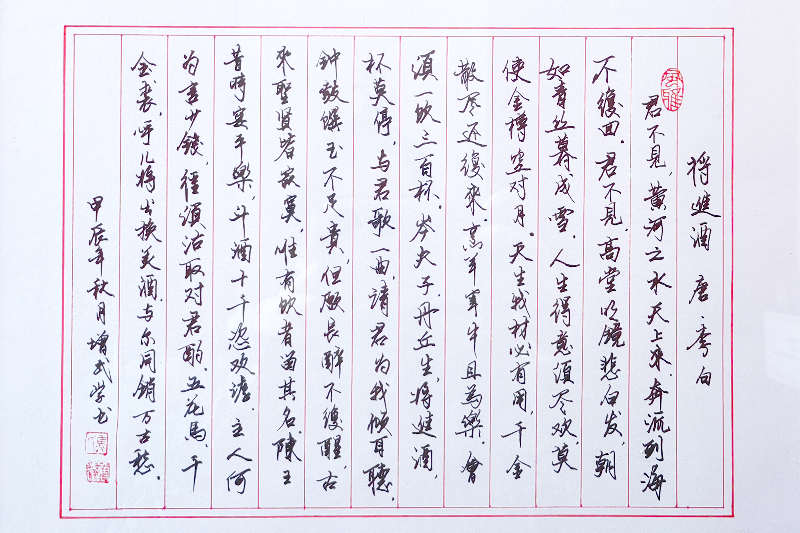 将進酒 唐·李白
風雅
君不見,黄河之水天上來,奔流到海
不復回。君不見,高堂明镜悲白发,朝
如青丝暮成雪。人生得意須尽欢,莫
使金樽空对月。天生我材必有用,千金
散尽还復來。烹羊宰牛且為樂,會
須一饮三百杯。岑夫子,丹丘生,将進酒,
杯莫停。与君歌一曲,請君为我倾耳聽。
钟鼓馔玉不足貴,但願長醉不復醒。古
來聖賢皆寂寞,惟有饮者留其名。陳王
昔時宴平樂,斗酒十千恣欢謔。主人何
为言少錢,徑須沽取对君酌。五花馬,千
金裘,呼儿将出换美酒,与尔同銷万古愁。
甲辰年秋月增武学书